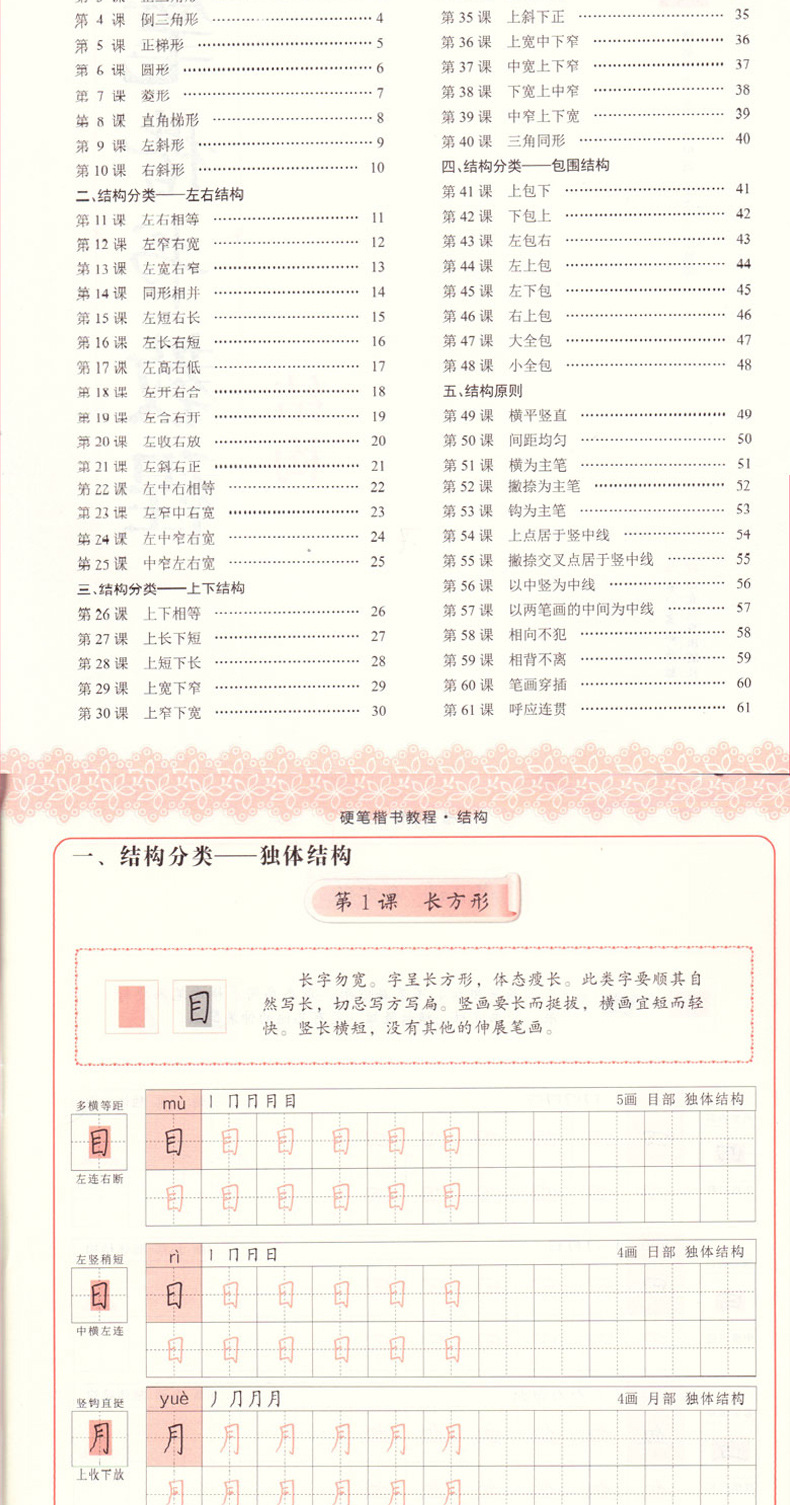 第 4 课 倒三角形 4
第 5 课 正梯形 5
第 6 课 圆形 6
第 7 课 菱形 7
第 8 课 直角梯形 8
第 9 课 左斜形 9
第 10 课 右斜形 10
二、结构分类——左右结构
第 11 课 左右相等 11
第 12 课 左窄右宽 12
第 13 课 左宽右窄 13
第 14 课 同形相并 14
第 15 课 左短右长 15
第 16 课 左长右短 16
第 17 课 左高右低 17
第 18 课 左开右合 18
第 19 课 左合右开 19
第 20 课 左收右放 20
第 21 课 左斜右正 21
第 22 课 左中右相等 22
第 23 课 左窄中右宽 23
第 24 课 左中窄右宽 24
第 25 课 中窄左右宽 25
三、结构分类——上下结构
第 26 课 上下相等 26
第 27 课 上长下短 27
第 28 课 上短下长 28
第 29 课 上宽下窄 29
第 30 课 上窄下宽 30
第 35 课 上斜下正 35
第 36 课 上宽中下窄 36
第 37 课 中宽上下窄 37
第 38 课 下宽上中窄 38
第 39 课 中窄上下宽 39
第 40 课 三角同形 40
四、结构分类——包围结构
第 41 课 上包下 41
第 42 课 下包上 42
第 43 课 左包右 43
第 44 课 左上包 44
第 45 课 左下包 45
第 46 课 右上包 46
第 47 课 大全包 47
第 48 课 小全包 48
五、结构原则
第 49 课 横平竖直 49
第 50 课 间距均匀 50
第 51 课 横为主笔 51
第 52 课 撇捺为主笔 52
第 53 课 钩为主笔 53
第 54 课 上点居于竖中线 54
第 55 课 撇捺交叉点居于竖中线 55
第 56 课 以中竖为中线 56
第 57 课 以两笔画的中间为中线 57
第 58 课 相向不犯 58
第 59 课 相背不离 59
第 60 课 笔画穿插 60
第 61 课 呼应连贯 61
硬笔楷书教程·结构
一、结构分类——独体结构
第 1 课 长方形
目
长字勿宽。字呈长方形，体态瘦长。此类字要顺其自
然写长，切忌写方写扁。竖画要长而挺拔，横画宜短而轻
快。竖长横短，没有其他的伸展笔画。
多横等距
目
左连右断
mù
5画 目部 独体结构
目 目 目 目 目 目
目 目 目 目 目 目
左竖稍短
日
中横左连
rì
4画 日部 独体结构
日 日 日 日 日 日
日 日 日 日 日 日
竖钩直挺
月
上收下放
yuè
4画 月部 独体结构
月 月 月 月 月 月
月 月 月 月 月 月